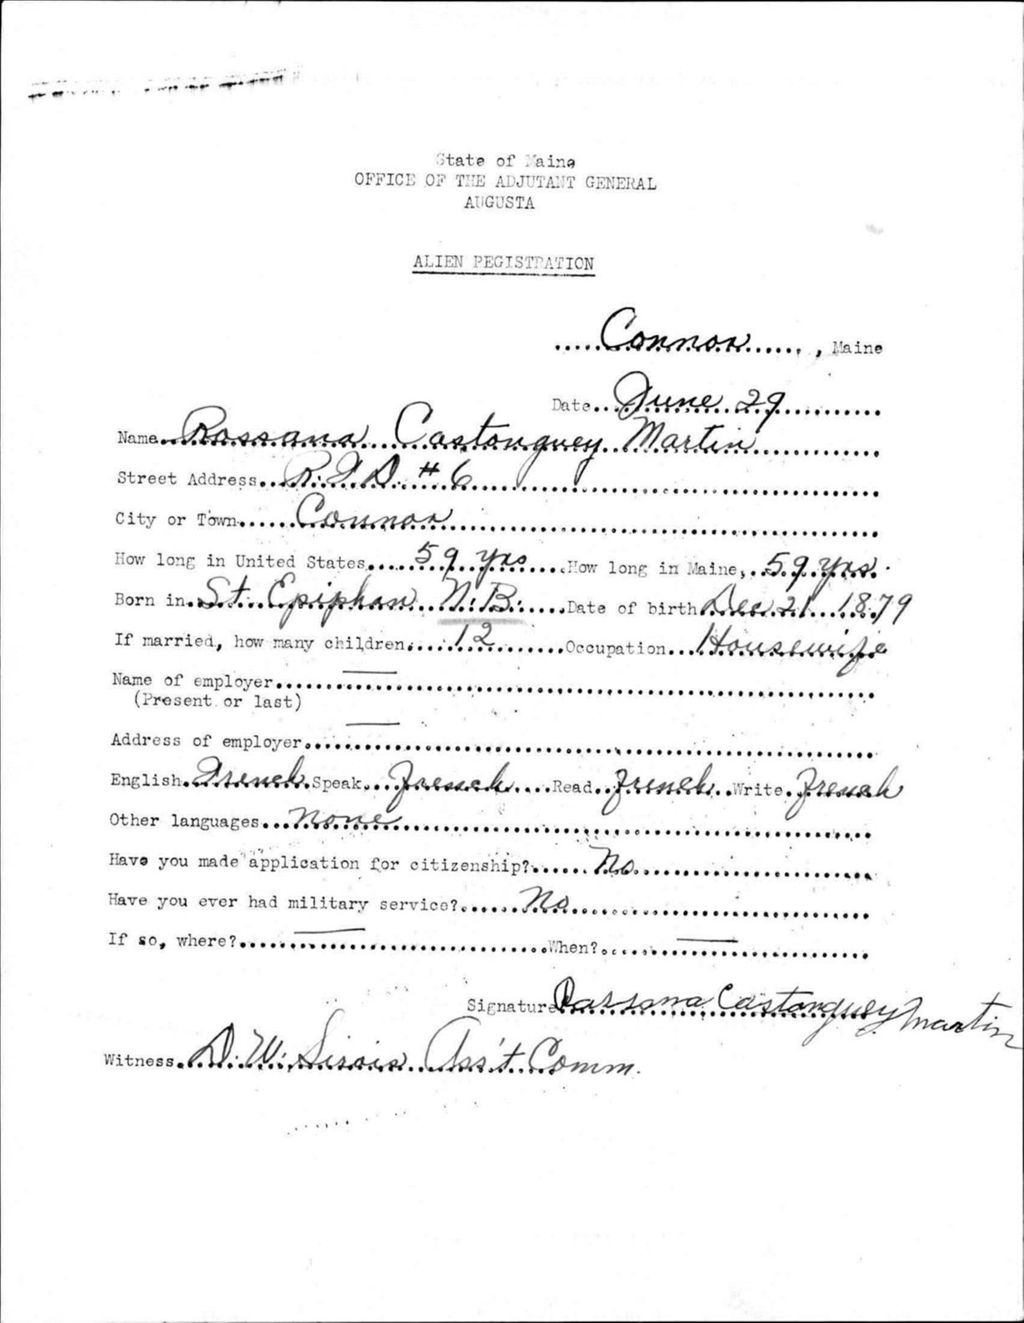 State of Maine
OFFICE OF THE ADJUTANT GENERAL
AUGUSTA
ALIEN REGISTRATION
Connor, Maine
Date June 29
Name Rossana Castonguey Martin
Street Address R.F.D. # 6
City or Town Connor
How long in United States 59 yrs How long in Maine 59 yrs.
Born in St. Epiphan N.B. Date of birth Dec 21 1879
If married, how many children 12 Occupation Housewife
Name of employer —
(Present or last)
Address of employer —
English French Speak French Read French Write French
Other languages none
Have you made application for citizenship? No
Have you ever had military service? No
If so, where? — When? —
Signature Rassana Castonguey Martin
Witness D. W. Sirois Ass't Comm.